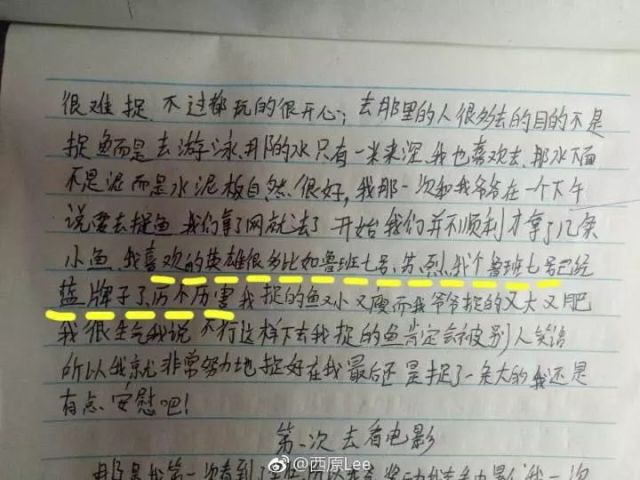 很难捉，不过都玩的很开心；去那里的人很多去的目的不是
捉鱼而是去游泳，那的水只有一米来深，我也喜欢去，那水下面
不是泥而是水泥板自然很好，我那一次和我爷爷在一个下午
说要去捉鱼，我们拿了网就去了，开始我们并不顺利才拿了几条
小鱼，我喜欢的英雄很多比如鲁班七号，苏烈，我个鲁班七号已经
蓝牌子了，厉不厉害我捉的鱼又小又瘦而我爷爷捉的又大又肥
我很生气我说不行这样下去我捉的鱼肯定会被别人笑话
所以我就非常努力地捉好在我最后还是捉了一条大的我还是
有点安慰吧！
第一次去看电影
那是我第一次看到了
@西原Lee